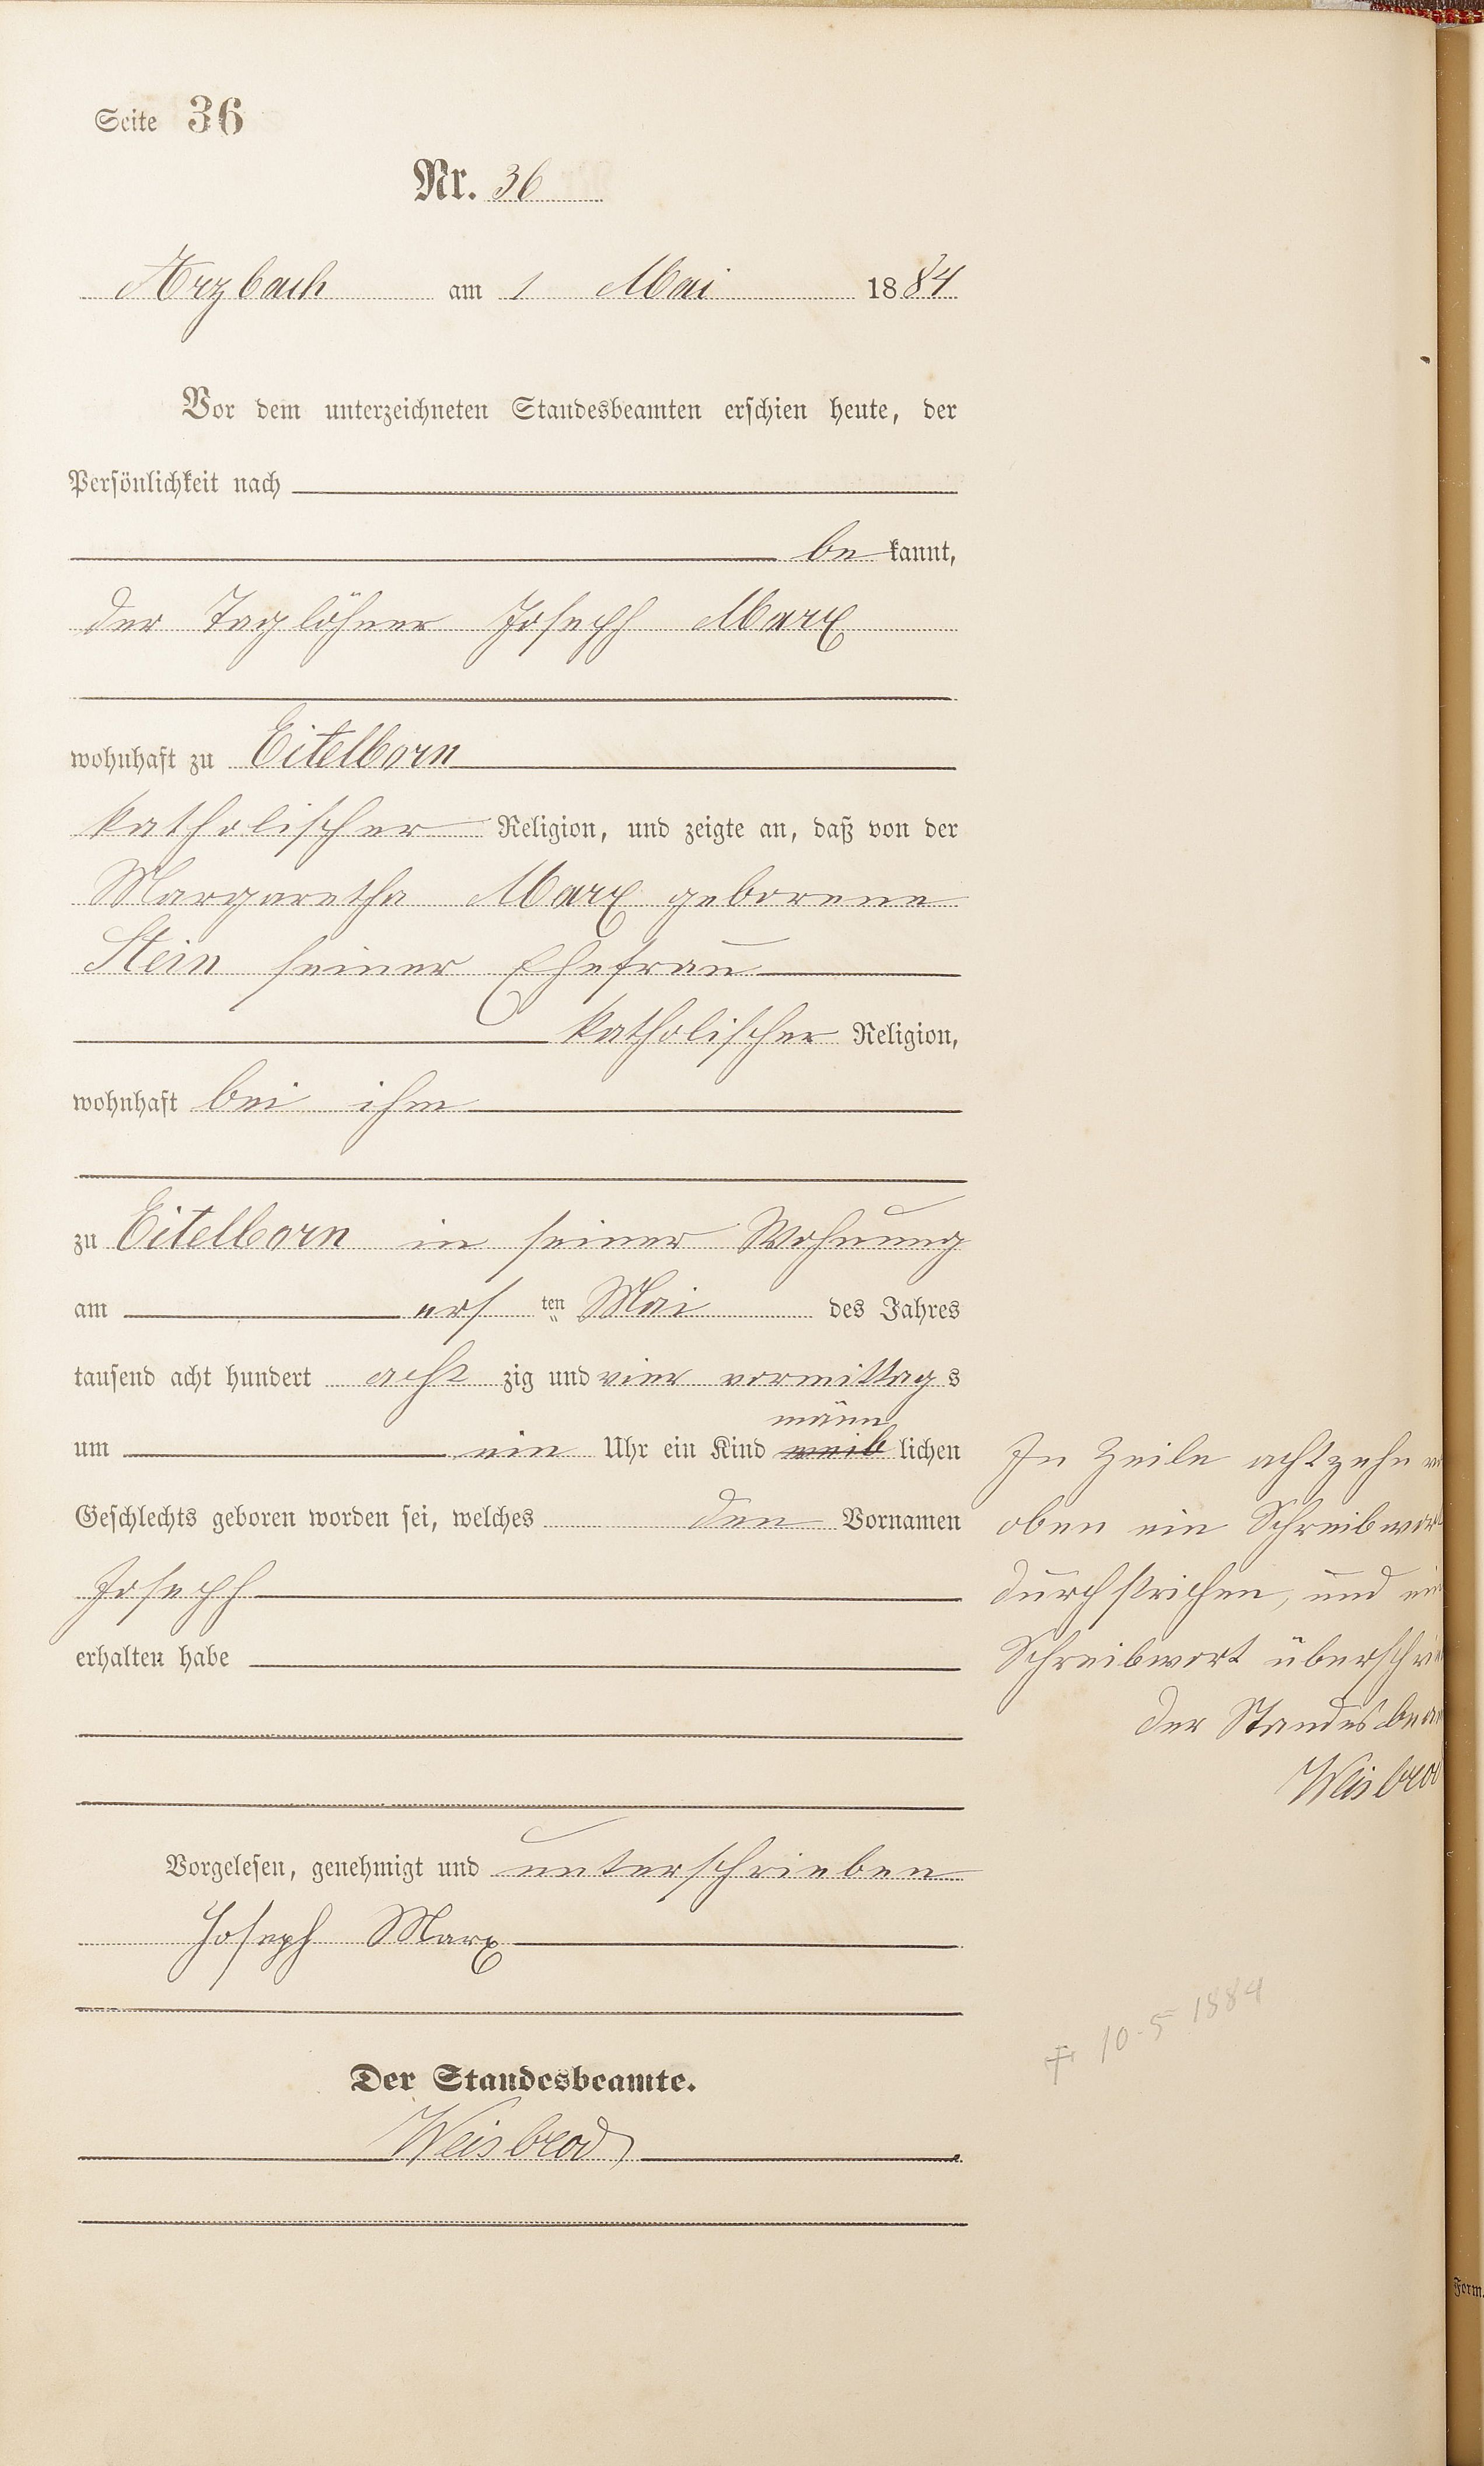 Seite 36
Nr. 36
Arzbach am 1 Mai 1884
Vor dem unterzeichneten Standesbeamten erschien heute, der
Persönlichkeit nach
be kannt,
der Taglöhner Joseph Marx
wohnhaft zu Eitelborn
katholischer Religion, und zeigte an, daß von der
Margaretha Marx geborene
Stein seiner Ehefrau
katholischer Religion,
wohnhaft bei ihm
zu Eitelborn in seiner Wohnung
am ers ten Mai des Jahres
tausend acht hundert acht zig und vier vormittags
männ
um ein Uhr ein Kind weib lichen
Geschlechts geboren worden sei, welches den Vornamen
Joseph
erhalten habe
Vorgelesen, genehmigt und unterschrieben
Joseph Marx
Der Standesbeamte.
Weisbrod
In Zeile achtzehn
oben ein Schreibwort
durchstrichen, und ein
Schreibwort überschrie
der Standesbea
Weisbrod
+ 10-5 1884
Form.